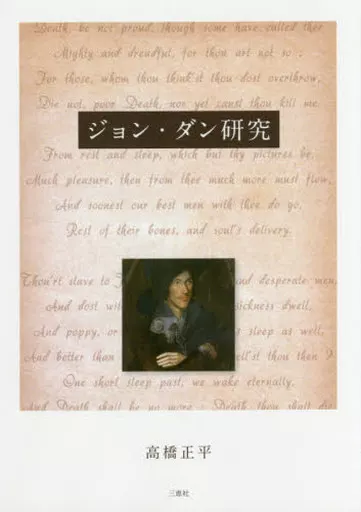 Death, be not proud, though some have called thee
Mighty and dreadful, for thou art not so ;
For those, whom thou think'st thou dost overthrow,
Die not, poor Death, nor yet canst thou kill me.
ジョン・ダン研究
From rest and sleep, which but thy pictures be,
Much pleasure, then from thee much more must flow,
And soonest our best men with thee do go,
Rest of their bones, and soul's delivery.
Thou'rt slave to and desperate men,
And dost wit sickness dwell,
And poppy, or sleep as well,
And better than ell'st thou then ?
One short sleep past, we wake eternally,
And Death shall be no more Death, thou shalt die
高橋正平
三恵社